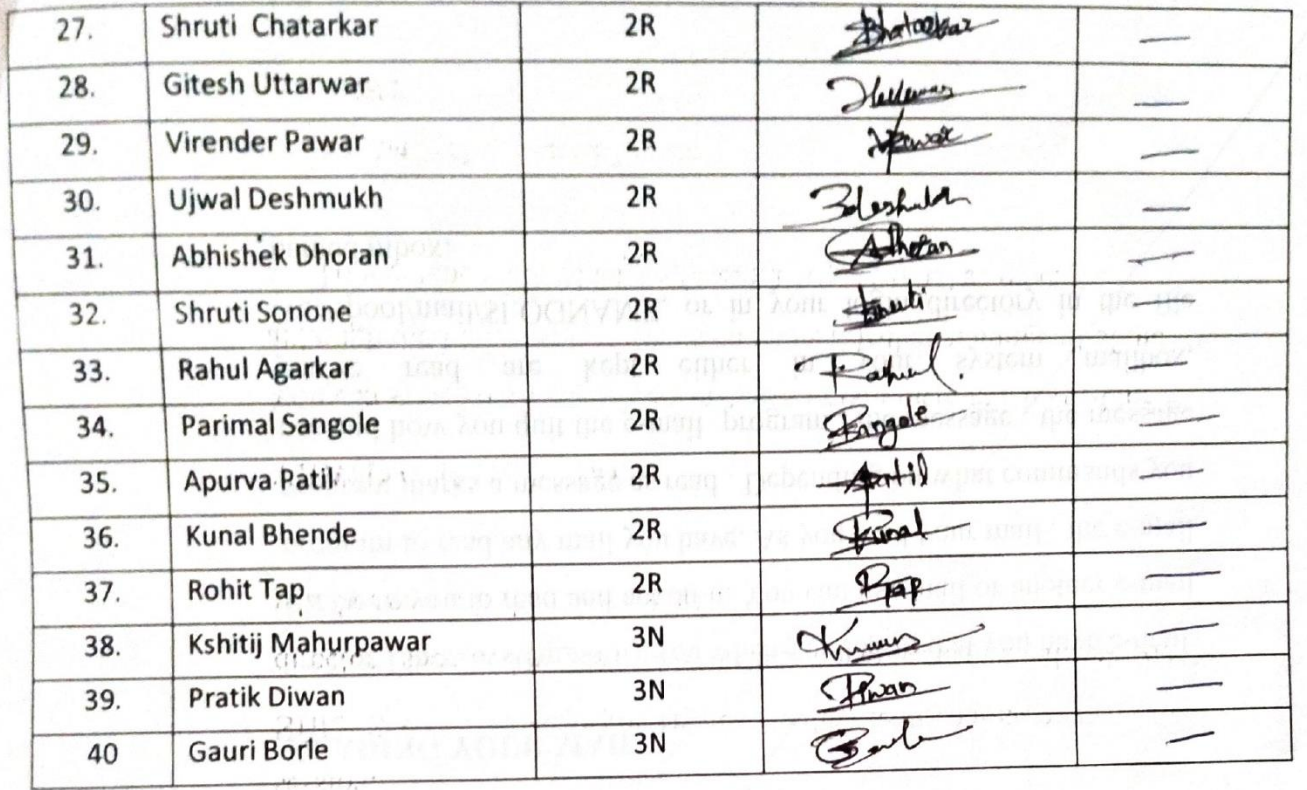 27. Shruti Chatarkar 2R Bhatarkar —
28. Gitesh Uttarwar 2R —
29. Virender Pawar 2R Pawar —
30. Ujwal Deshmukh 2R —
31. Abhishek Dhoran 2R ADhoran —
32. Shruti Sonone 2R Shruti —
33. Rahul Agarkar 2R Rahul. —
34. Parimal Sangole 2R Sangole —
35. Apurva Patil 2R Apatil —
36. Kunal Bhende 2R Kunal —
37. Rohit Tap 2R RTap —
38. Kshitij Mahurpawar 3N —
39. Pratik Diwan 3N Diwan —
40 Gauri Borle 3N —